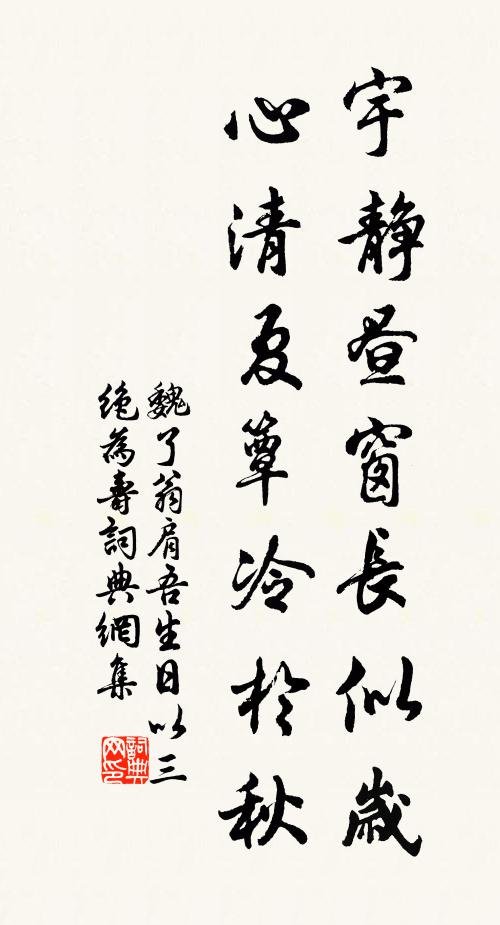 宇靜晝窗長似歲
心清夏簟冷於秋
魏了翁肩吾生日以三
絕為壽詞典網集
詞典
网印